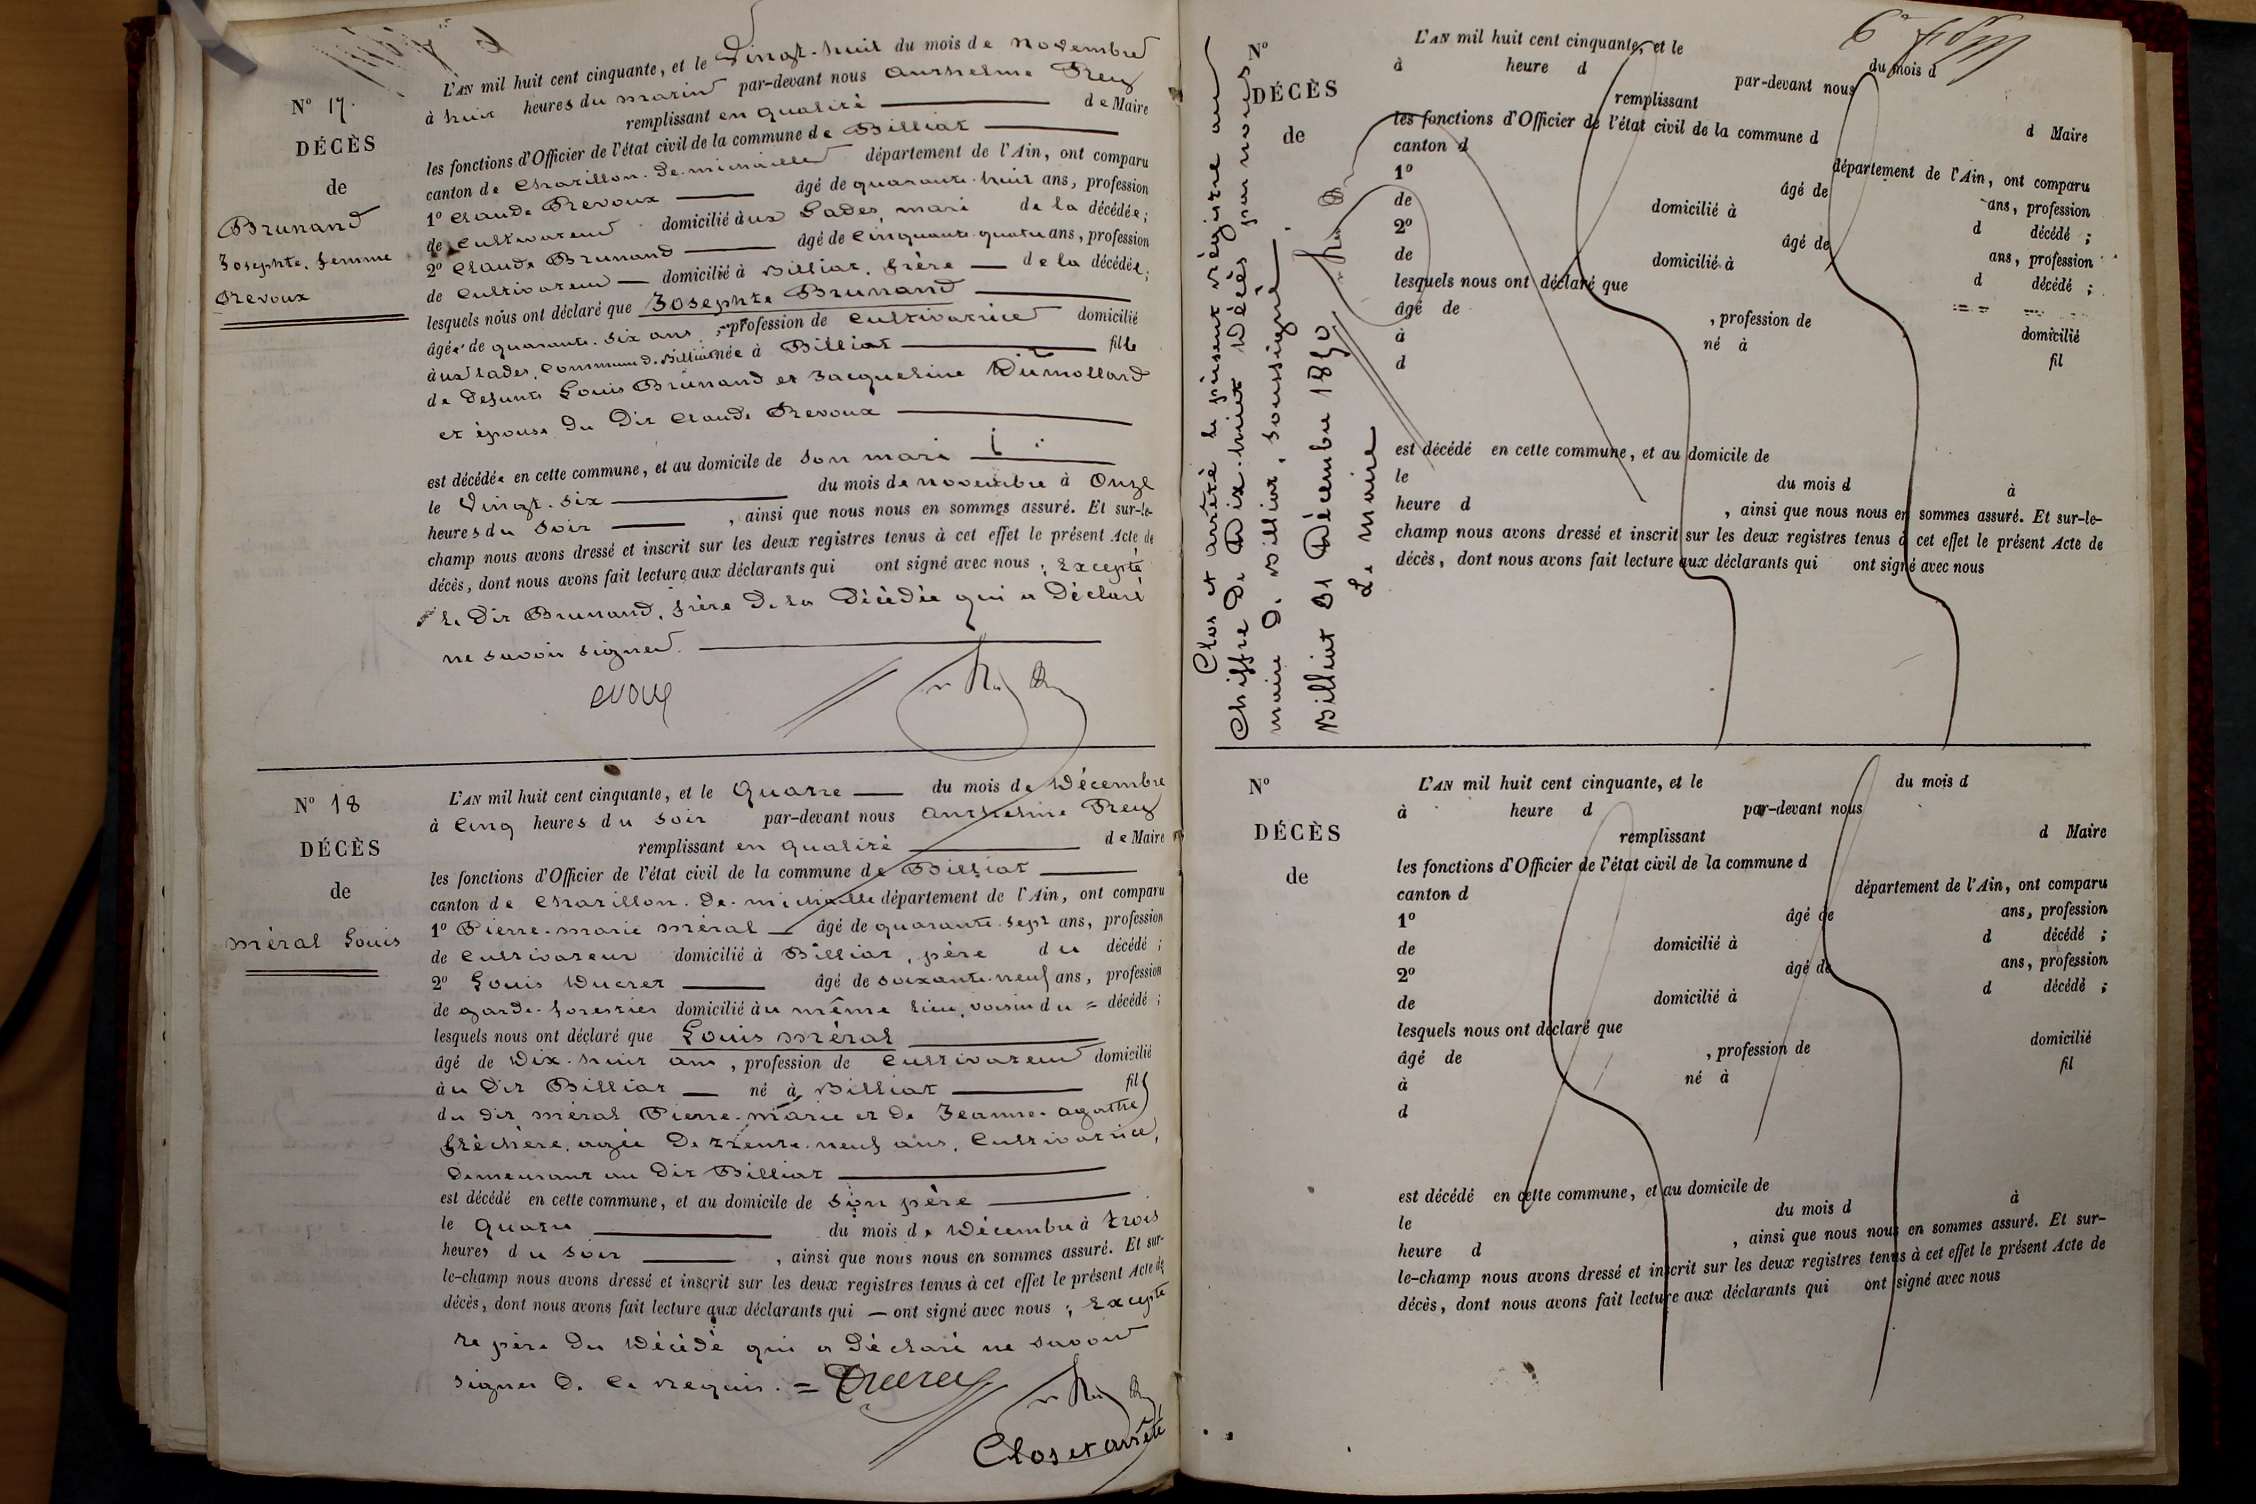 N° 17.
DÉCÈS
de
Brunand
Josephte, femme
Revoux
L'AN mil huit cent cinquante, et le Vingt-huit du mois de novembre
à huit heures du matin par-devant nous Anthelme Rey
remplissant en qualité de Maire
les fonctions d'Officier de l'état civil de la commune de Billiat
canton de Chatillon-de-michaille département de l'Ain, ont comparu
1° Claude Revoux âgé de quarante-huit ans, profession
de Cultivateur domicilié aux Lades, mari de la décédée;
2° Claude Brunand âgé de Cinquante-quatre ans, profession
de Cultivateur domicilié à Billiat, frère de la décédée;
lesquels nous ont déclaré que Josephte Brunand
âgée de quarante-six ans, profession de Cultivatrice domicilié
aux Lades, Commune de Billiat née à Billiat fille
de Defunts Louis Brunand et Jacqueline Dumollard
et épouse du Dit Claude Revoux
est décédée en cette commune, et au domicile de son mari
le Vingt-six du mois de novembre à Onze
heures du Soir , ainsi que nous nous en sommes assuré. Et sur-le-
champ nous avons dressé et inscrit sur les deux registres tenus à cet effet le présent Acte de
décès, dont nous avons fait lecture aux déclarants qui ont signé avec nous ; Excepté
le Dit Brunand, frère De la Décédée qui a Déclaré
ne savoir signer.
N° 18
DÉCÈS
de
méral Louis
L'AN mil huit cent cinquante, et le Quatre du mois de Décembre
à Cinq heures du soir par-devant nous Anthelme Rey
remplissant en qualité de Maire
les fonctions d'Officier de l'état civil de la commune de Billiat
canton de Chatillon-de-michaille département de l'Ain, ont comparu
1° Pierre-marie méral âgé de quarante-sept ans, profession
de Cultivateur domicilié à Billiat, père du décédé ;
2° Louis Ducret âgé de soixante-neuf ans, profession
de garde-forestier domicilié au même lieu, voisin du = décédé ;
lesquels nous ont déclaré que Louis méral
âgé de Dix-huit ans, profession de Cultivateur domicilié
au Dit Billiat né à Billiat fils
du dit méral Pierre-marie et de Jeanne-agathe
fréchère, agée De trente-neuf ans, Cultivatrice,
Demeurant au Dit Billiat
est décédé en cette commune, et au domicile de son père
le Quatre du mois de Décembre à trois
heures du soir , ainsi que nous nous en sommes assuré. Et sur-
le-champ nous avons dressé et inscrit sur les deux registres tenus à cet effet le présent Acte de
décès, dont nous avons fait lecture aux déclarants qui — ont signé avec nous ; Excepté
le père Du Décédé qui a Déclaré ne savoir
signer De Ce requis. = Ducret
Clos et arrêté
Clos et arrêté le présent régistre au
Chiffre De Dix-huit Décès par nous
maire De Billiat, soussigné.
Billiat 31 Décembre 1850
Le maire
N°
DÉCÈS
de
L'AN mil huit cent cinquante, et le du mois d
à heure d par-devant nous
remplissant d Maire
les fonctions d'Officier de l'état civil de la commune d
canton d département de l'Ain, ont comparu
1° âgé de ans, profession
de domicilié à d décédé ;
2° âgé de ans, profession
de domicilié à d décédé ;
lesquels nous ont déclaré que
âgé de , profession de domicilié
à né à fil
d
est décédé en cette commune, et au domicile de
le du mois d à
heure d , ainsi que nous nous en sommes assuré. Et sur-le-
champ nous avons dressé et inscrit sur les deux registres tenus à cet effet le présent Acte de
décès, dont nous avons fait lecture aux déclarants qui ont signé avec nous
N°
DÉCÈS
de
L'AN mil huit cent cinquante, et le du mois d
à heure d par-devant nous
remplissant d Maire
les fonctions d'Officier de l'état civil de la commune d
canton d département de l'Ain, ont comparu
1° âgé de ans, profession
de domicilié à d décédé ;
2° âgé de ans, profession
de domicilié à d décédé ;
lesquels nous ont déclaré que
âgé de , profession de domicilié
à né à fil
d
est décédé en cette commune, et au domicile de
le du mois d à
heure d , ainsi que nous nous en sommes assuré. Et sur-
le-champ nous avons dressé et inscrit sur les deux registres tenus à cet effet le présent Acte de
décès, dont nous avons fait lecture aux déclarants qui ont signé avec nous